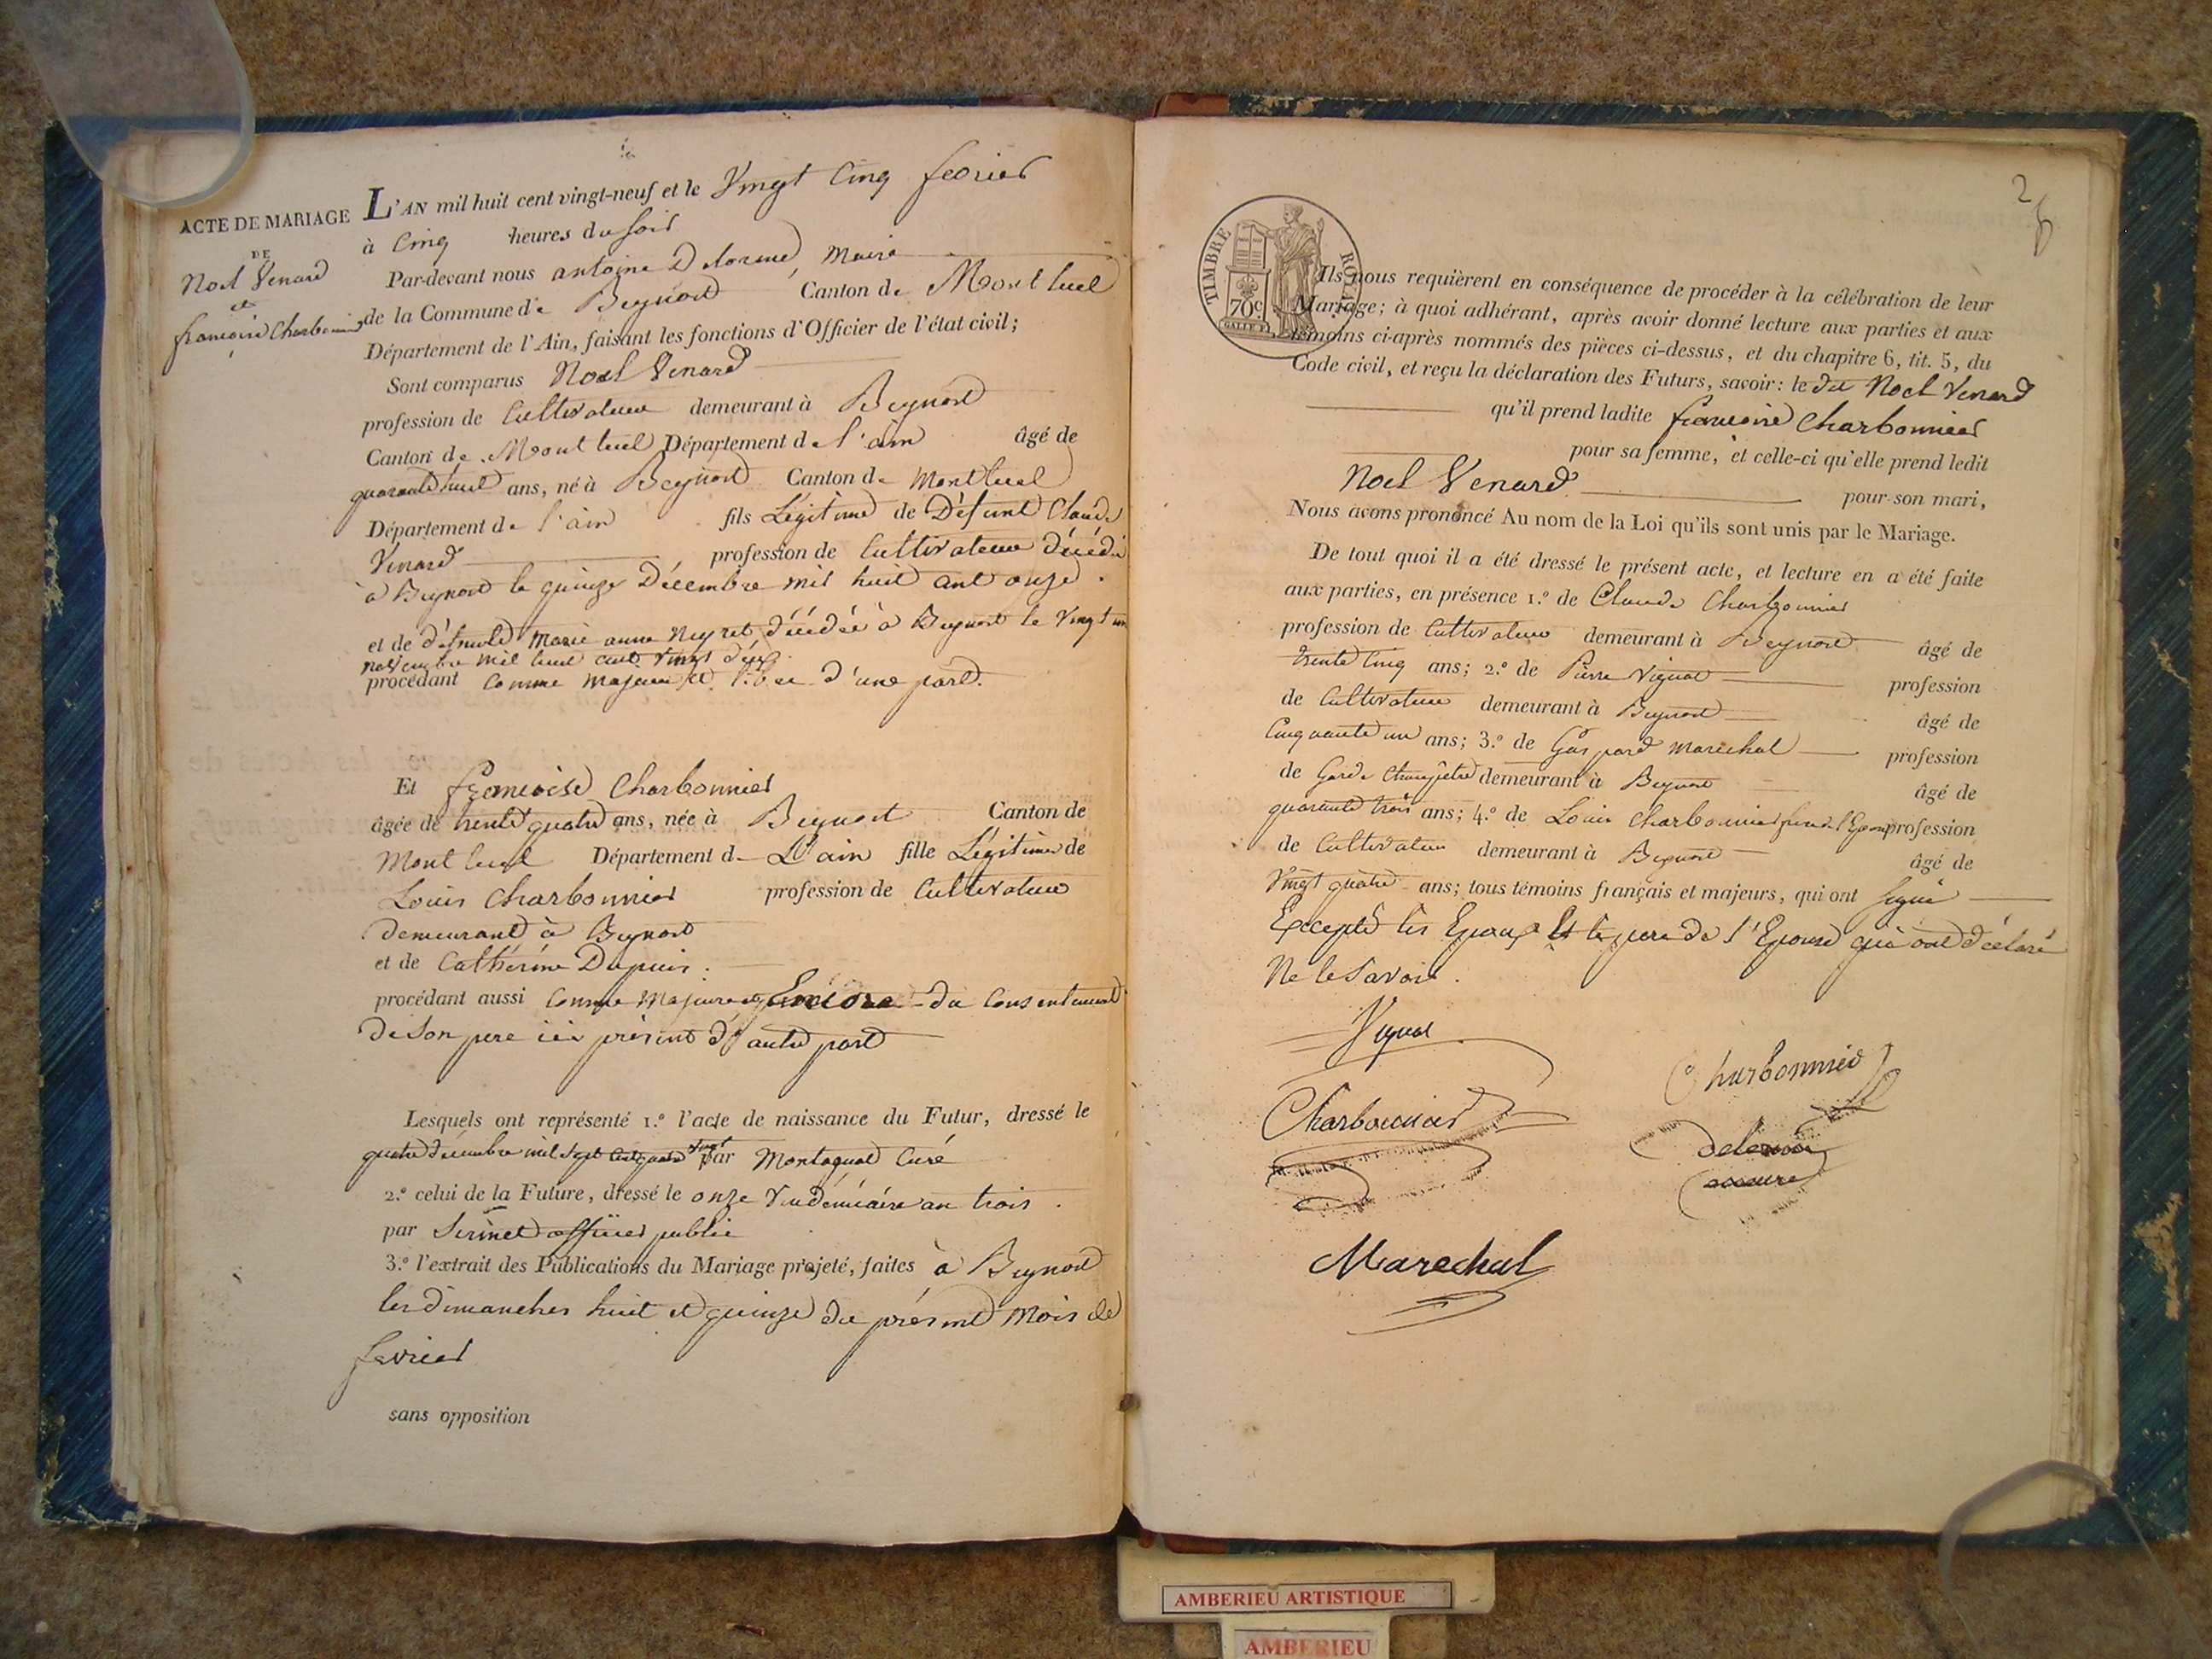 ACTE DE MARIAGE
DE
Noel Venard
et
francoise Charbonnier
L'AN mil huit cent vingt-neuf et le Vingt Cinq fevrier
à Cinq heures du soir
Par-devant nous antoine Delorme, Maire
de la Commune de Beynost Canton de Montluel
Département de l'Ain, faisant les fonctions d'Officier de l'état civil;
Sont comparus Noel Venard
profession de Cultivateur demeurant à Beynost
Canton de Montluel Département de l'ain âgé de
quarante huit ans, né à Beynost Canton de Montluel
Département de l'ain fils Légitime de Défunt Claude
Venard profession de Cultivateur décédé
à Beynost le quinze Décembre mil huit cent onze.
et de défunte Marie anne Neyret, décédée à Beynost le Vingt un
novembre mil huit cent Vingt deux
procédant Comme Majeur et libre d'une part.
Et francoise Charbonnier
âgée de trente quatre ans, née à Beynost Canton de
Montluel Département de L'ain fille Légitime de
Louis Charbonnier profession de Cultivateur
demeurant à Beynost
et de Catherine Dupuis.
procédant aussi Comme Majeure et Encore du Consentement
de Son pere ici présent d'autre part
Lesquels ont représenté 1.º l'acte de naissance du Futur, dressé le
quatre décembre mil sept cent quatre vingt par Montagnat Curé
2.º celui de la Future, dressé le onze Vendémiaire an trois.
par officier public
3.º l'extrait des Publications du Mariage projeté, faites à Beynost
les dimanches huit et quinze du présent Mois de
fevrier
sans opposition
2
TIMBRE ROYAL
70c
Ils nous requièrent en conséquence de procéder à la célébration de leur
Mariage; à quoi adhérant, après avoir donné lecture aux parties et aux
témoins ci-après nommés des pièces ci-dessus, et du chapitre 6, tit. 5, du
Code civil, et reçu la déclaration des Futurs, savoir: le dit Noel Venard
qu'il prend ladite francoise Charbonnier
pour sa femme, et celle-ci qu'elle prend ledit
Noel Venard pour son mari,
Nous avons prononcé Au nom de la Loi qu'ils sont unis par le Mariage.
De tout quoi il a été dressé le présent acte, et lecture en a été faite
aux parties, en présence 1.º de Claude Charbonnier
profession de Cultivateur demeurant à Beynost âgé de
trente Cinq ans; 2.º de Pierre Vignat profession
de Cultivateur demeurant à Beynost âgé de
Cinquante un ans; 3.º de Gaspard Marechal profession
de Garde Champêtre demeurant à Beynost âgé de
quarante trois ans; 4.º de Louis Charbonnier frere de l'Epouse profession
de Cultivateur demeurant à Beynost âgé de
Vingt quatre ans; tous témoins français et majeurs, qui ont signé
Excepté les Epoux Et le pere de l'Epouse qui ont déclaré
Ne le Savoir.
Vignat
Charbonnier
Charbonnier
Delorme
maire
Marechal
AMBERIEU ARTISTIQUE
AMBERIEU